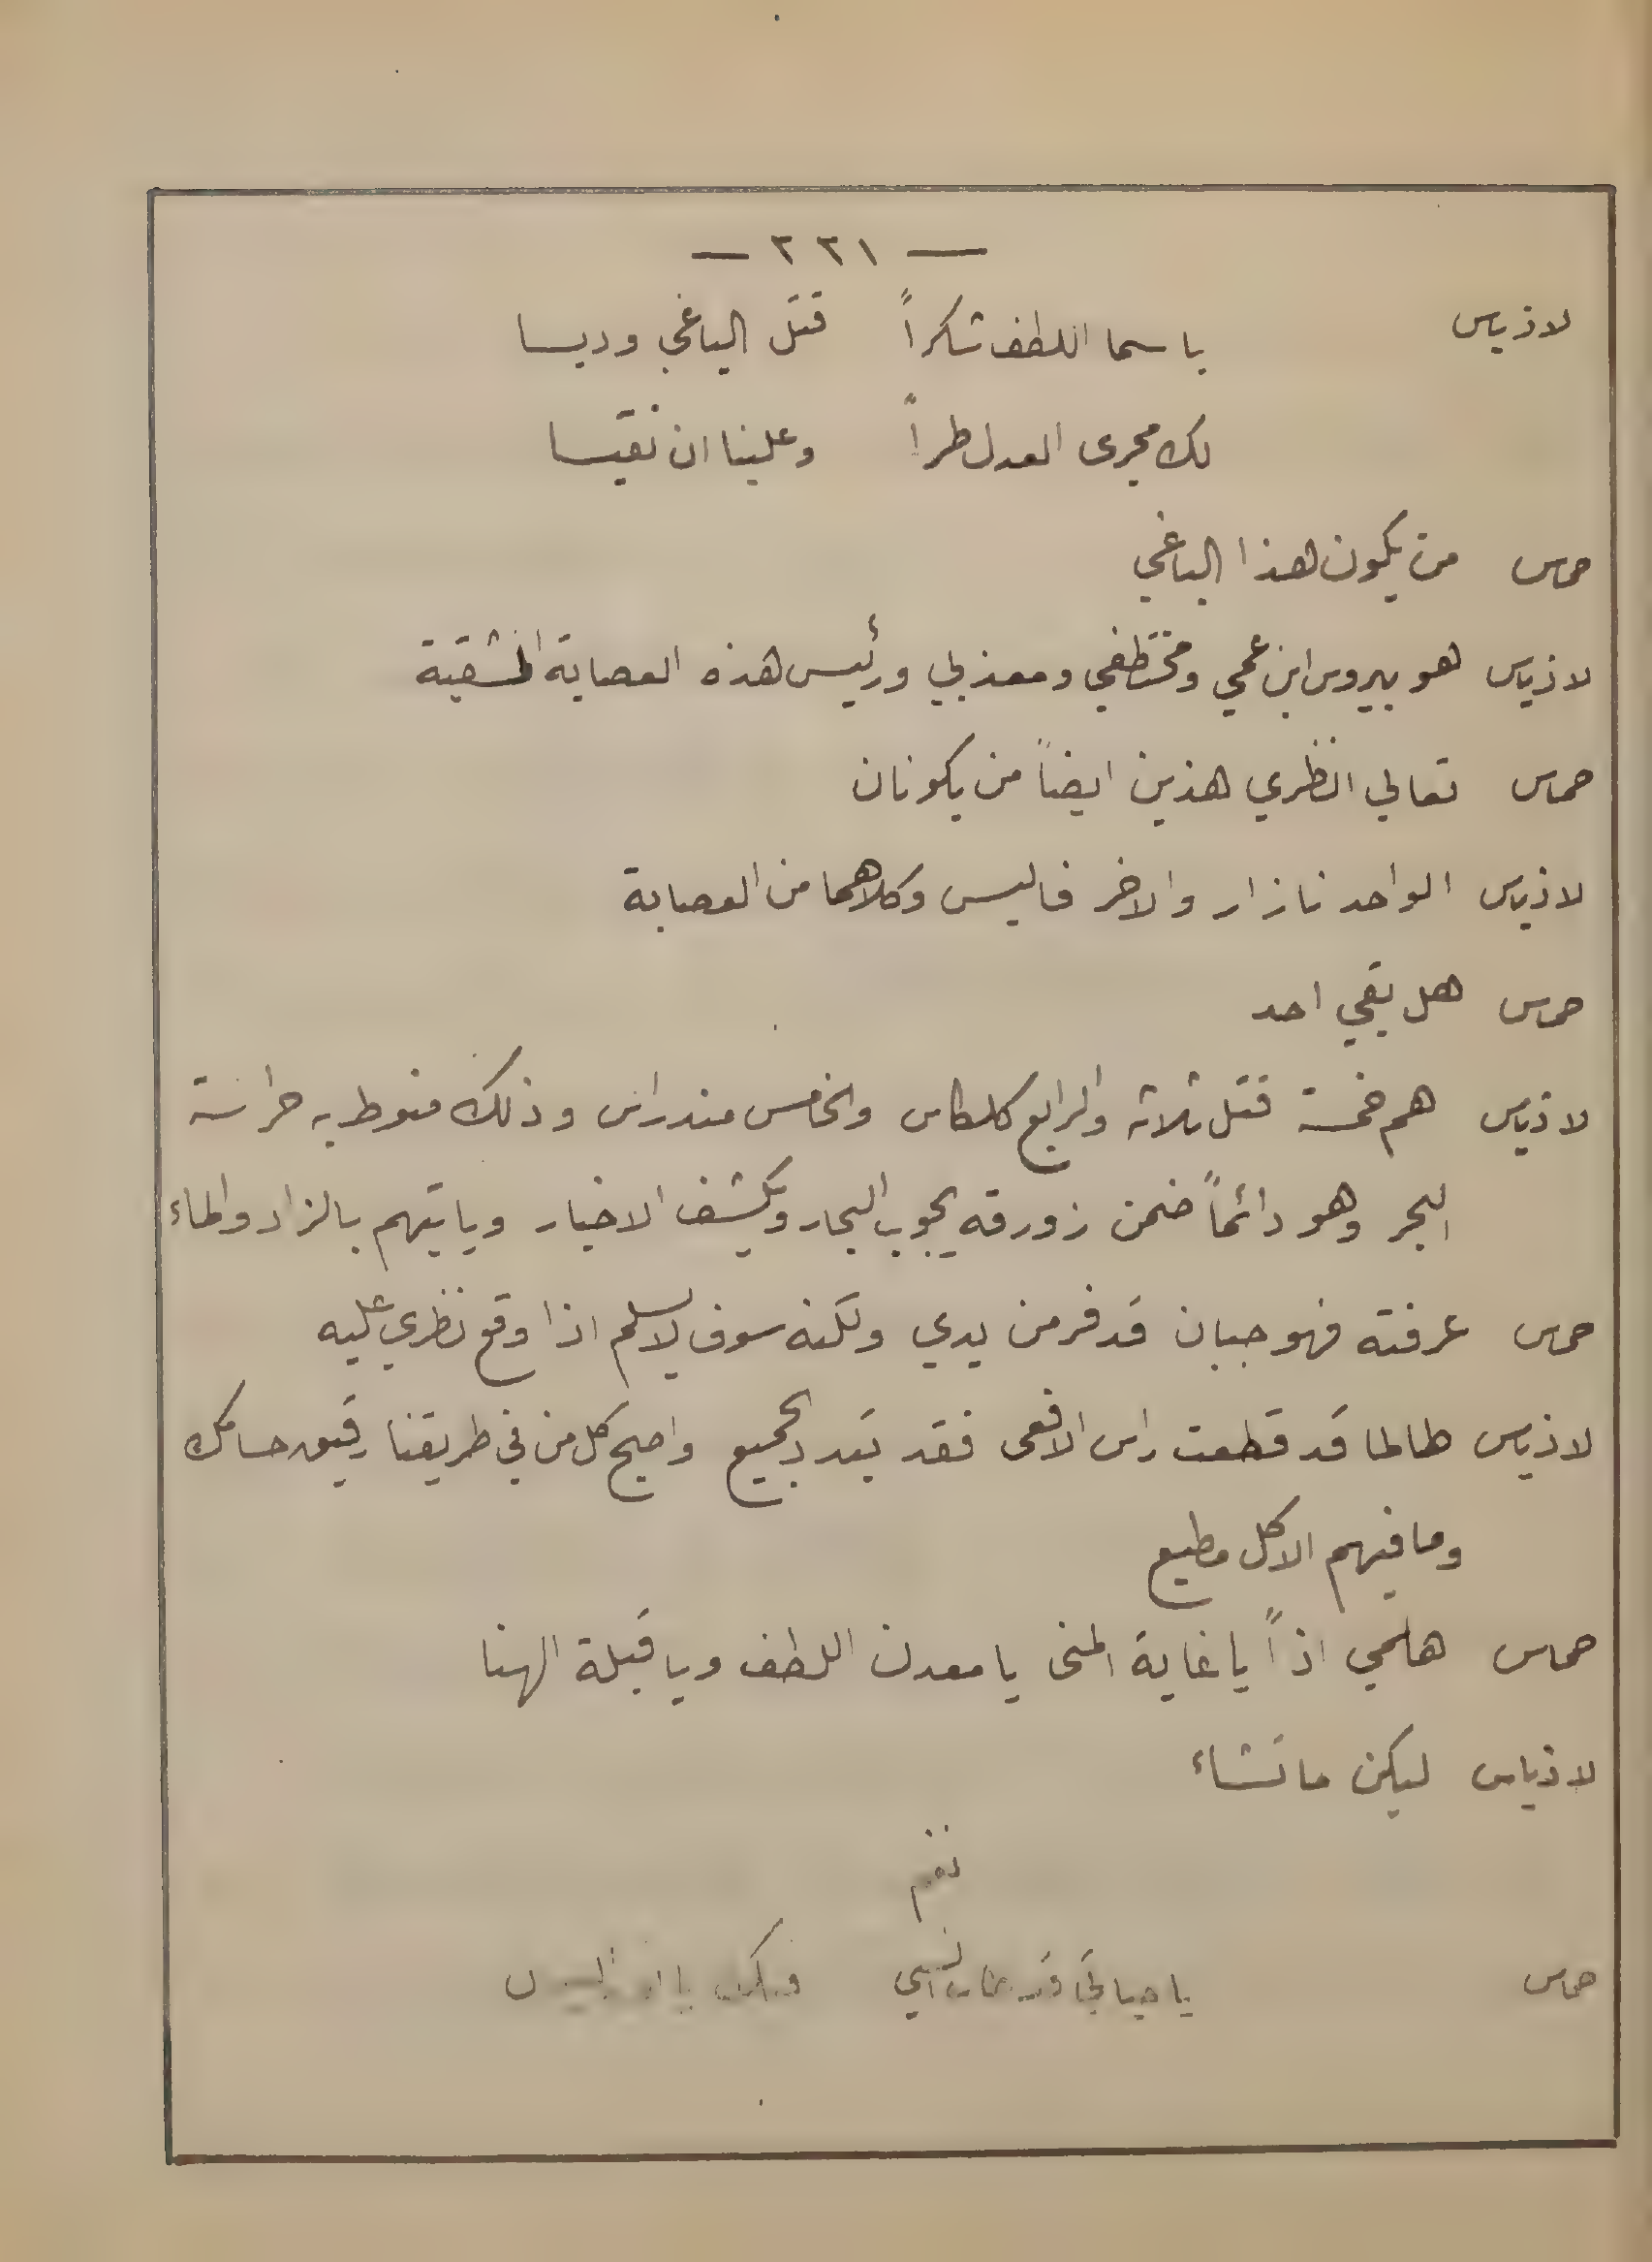 — ٢٢١ —
لاذياس يا سما اللطف شكراً قتل الباغي وديسا
لك مجرى العدل طراً وعلينا ان نقيسا
حماس من يكون هذا الباغي
لاذياس هو بيروس ابن عمي ومختطفي ومعذبي ورئيس هذه العصابة الشقية
حماس تعالي انظري هذين ايضاً من يكونان
لاذياس الواحد نازار والاخر فاليس وكلاهما من العصابة
حماس هل بقي احد
لاذياس هم خمسة قتل ثلاثة والرابع كلكاس والخامس مندراس وذلك منوط به حراسة
البحر وهو دائماً ضمن زورقه يجوب البحار ويكشف الاخبار وياتيهم بالزاد والماء
حماس عرفته فهو جبان قد فر من يدي ولكنه سوف لا يسلم اذا وقع نظري عليه
لاذياس طالما قد قطعت راس الافعى فقد تبدد الجميع واصبح كل من في طريقنا رقيق حسامك
وما فيهم الا كل مطيع
حماس هلمي اذاً يا غاية المنى يا معدن اللطف ويا قبلة الهنا
لاذياس ليكن ما تشاء
نغم
حماس يا حياتي قد